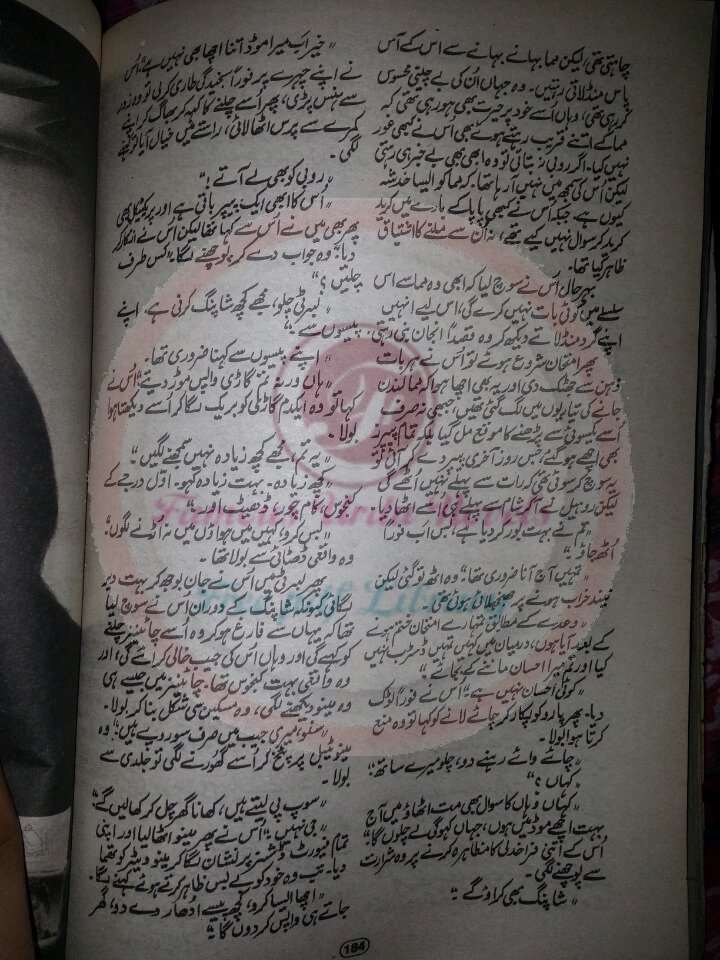 چاہتی تھی، لیکن مما بہانے بہانے سے اس کے آس
پاس منڈلاتی رہتیں۔ وہ جہاں اُن کی بے چینی محسوس
کر رہی تھی، وہاں اُسے خود پر حیرت بھی ہو رہی تھی کہ
مما کے اتنے قریب رہتے ہوئے کبھی اُس نے کبھی غور
نہیں کیا۔ اگر روبی نہ بتاتی تو وہ ابھی بھی بے خبر ہی رہتی
لیکن اُس کی سمجھ میں نہیں آ رہا تھا۔ کہ مما کو ایسا خدشہ
کیوں ہے، جبکہ اس نے کبھی پاپا کے بارے میں کرید
کرید کر سوال نہیں کیے تھے، نہ اُن سے ملنے کا اشتیاق
ظاہر کیا تھا۔
بہرحال اُس نے سوچ لیا کہ ابھی وہ مما سے اس
سلسلے میں کوئی بات نہیں کرے گی، اس لیے انہیں
اپنے گرد منڈلاتے دیکھ کر وہ قصداً انجان بنی رہتی۔
پھر امتحان شروع ہوئے تو اُس نے ہر بات
ذہن سے جھٹک دی اور یہ بھی اچھا ہوا کہ مما لندن
جانے کی تیاریوں میں لگ گئی تھیں، جبھی نہ صرف
اُسے یکسوئی سے پڑھنے کا موقع مل گیا بلکہ تمام پیپرز
بھی اچھے ہو گئے۔ جس روز آخری پیپر دے کر آئی تو
یہ سوچ کر سوئی تھی کہ رات سے پہلے نہیں اُٹھے گی
لیکن روحیل نے آ کر شام سے پہلے ہی اُسے اٹھا دیا۔
”تم نے بہت بور کر دیا ہے، بس اب فوراً
اُٹھ جاؤ۔“
”تمہیں آج آنا ضروری تھا“ وہ اٹھ تو گئی لیکن
نیند خراب ہونے پر جھنجلائی ہوئی تھی۔
”وعدے کے مطابق تمہارے امتحان ختم ہونے
کے بعد آیا ہوں، درمیان میں کہیں تمہیں ڈسٹرب نہیں
کیا اور تم میرا احسان ماننے کے بجائے“
”کوئی احسان نہیں ہے“ اُس نے فوراً ٹوک
دیا۔ پھر پارو کو پکار کر چائے لانے کو کہا تو وہ منع
کرتا ہوا بولا۔
”چائے وائے رہنے دو، چلو میرے ساتھ“
”کہاں؟“
”کہاں وہاں کا سوال بھی مت اٹھاؤ میں آج
بہت اچھے موڈ میں ہوں، جہاں کہو گی لے چلوں گا“
اُس کے اتنی فراخدلی کا مظاہرہ کرنے پر وہ شرارت
سے پوچھنے لگی۔
”شاپنگ بھی کراؤ گے؟“
”خیر اب میرا موڈ اتنا اچھا بھی نہیں ہے“ اُس
نے اپنے چہرے پر فوراً سنجیدگی طاری کر لی تو وہ زور
سے ہنس پڑی، پھر اُسے چلنے کا کہہ کر بھاگ کر اپنے
کمرے سے پرس اٹھا لائی، راستے میں خیال آیا تو کہنے
لگی۔
”روبی کو بھی لے آتے!“
”اُس کا ابھی ایک پیپر باقی ہے اور پریکٹیکل بھی
پھر بھی میں نے اُس سے کہا تھا لیکن اس نے انکار کر
دیا“ وہ جواب دے کر پوچھنے لگا۔ ”کس طرف
چلیں؟“
”لبرٹی چلو، مجھے کچھ شاپنگ کرنی ہے، اپنے
پیسوں سے“
”اپنے پیسوں سے کہنا ضروری تھا۔
”ہاں ورنہ تم گاڑی واپس موڑ دیتے“ اُس نے
کہا تو وہ ایکدم گاڑی کو بریک لگا کر اُسے دیکھتا ہوا
بولا۔
”یہ تم، مجھے کچھ زیادہ نہیں سمجھنے لگیں“
”کچھ زیادہ۔ بہت زیادہ کہو۔ اوّل درجے کے
کنجوس، کام چور، ڈھیٹ اور“
”بس کرو، کہیں میں ہواؤں میں نہ اُڑنے لگوں“
وہ واقعی ڈھٹائی سے بولا تھا۔
پھر لبرٹی میں اس نے جان بوجھ کر بہت دیر
لگائی کیونکہ شاپنگ کے دوران اُس نے سوچ لیا
تھا کہ یہاں سے فارغ ہو کر وہ اُسے چائنیز چلنے
کو کہے گی اور وہاں اُس کی جیب خالی کرائے گی، اور
وہ واقعی بہت کنجوس تھا۔ چائنیز میں جیسے ہی
وہ مینو دیکھنے لگی، وہ مسکین سی شکل بنا کر بولا۔
”سنو، میری جیب میں صرف سو روپے ہیں“ وہ
مینو ٹیبل پر پٹخ کر اُسے گھورنے لگی تو جلدی سے
بولا۔
”سوپ پی لیتے ہیں، کھانا گھر چل کر کھالیں گے“
”جی نہیں“ اُس نے پھر مینو اٹھا لیا اور اپنی
تمام فیورٹ ڈشنز پر نشان لگا کر مینو ویٹر کو تھما
دیا۔ تب وہ خود کو بے بس ظاہر کرتے ہوئے کہنے لگا۔
”اچھا ایسا کرو، کچھ پیسے اُدھار دے دو، گھر
جاتے ہی واپس کر دوں گا“
184
Famous Urdu Novels
Free pdf Library